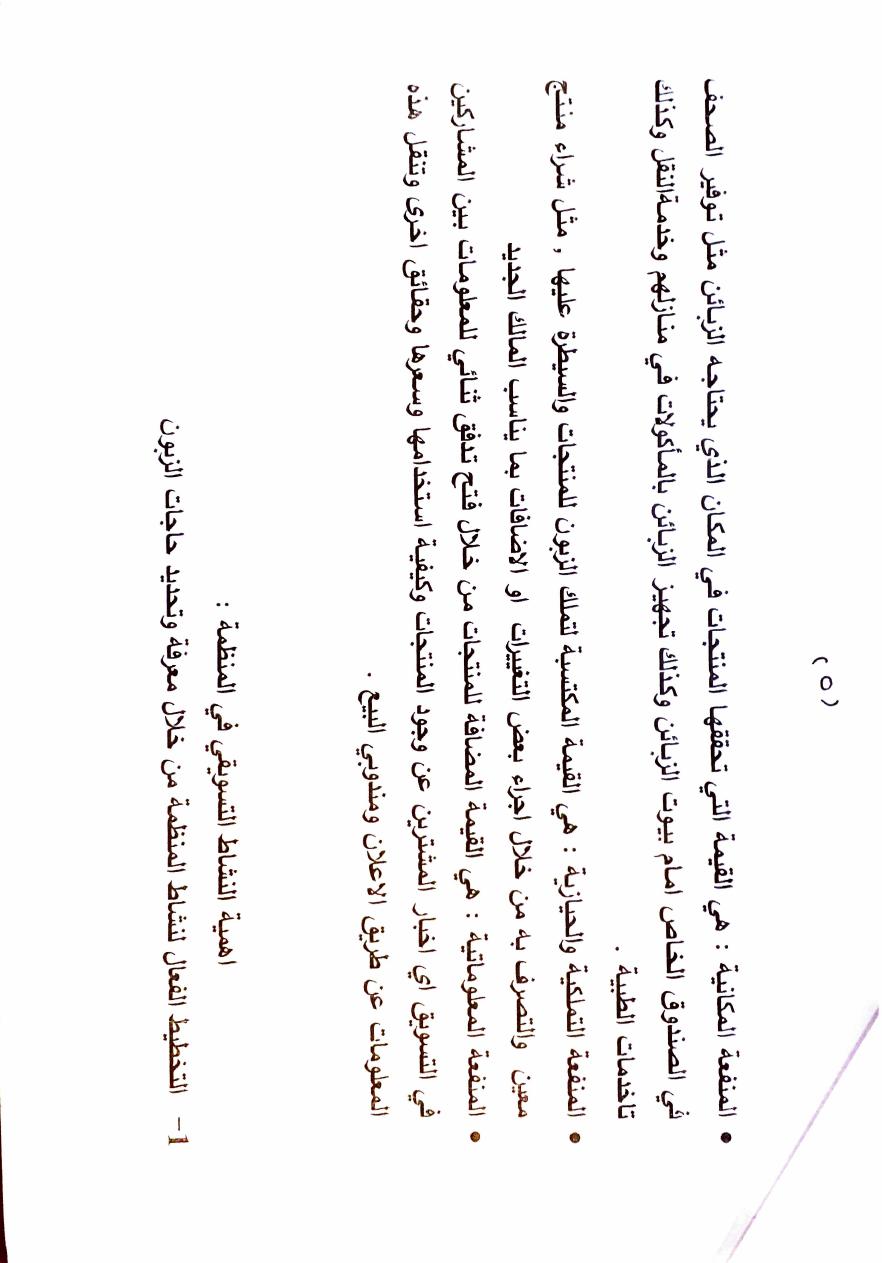 (٥)
• المنفعة المكانية : هي القيمة التي تحققها المنتجات في المكان الذي يحتاجه الزبائن مثل توفير الصحف
في الصندوق الخاص امام بيوت الزبائن وكذلك تجهيز الزبائن بالمأكولات في منازلهم وخدمةالنقل وكذلك
تاخدمات الطبية .
• المنفعة التملكية والحيازية : هي القيمة المكتسبة لتملك الزبون للمنتجات والسيطرة عليها , مثل شراء منتج
معين والتصرف به من خلال اجراء بعض التغييرات او الاضافات بما يناسب المالك الجديد
• المنفعة المعلوماتية : هي القيمة المضافة للمنتجات من خلال فتح تدفق ثنائي للمعلومات بين المشاركين
في التسويق اي اخبار المشترين عن وجود المنتجات وكيفية استخدامها وسعرها وحقائق اخرى وتنقل هذه
المعلومات عن طريق الاعلان ومندوبي البيع .
اهمية النشاط التسويقي في المنظمة :
1- التخطيط الفعال لنشاط المنظمة من خلال معرفة وتحديد حاجات الزبون